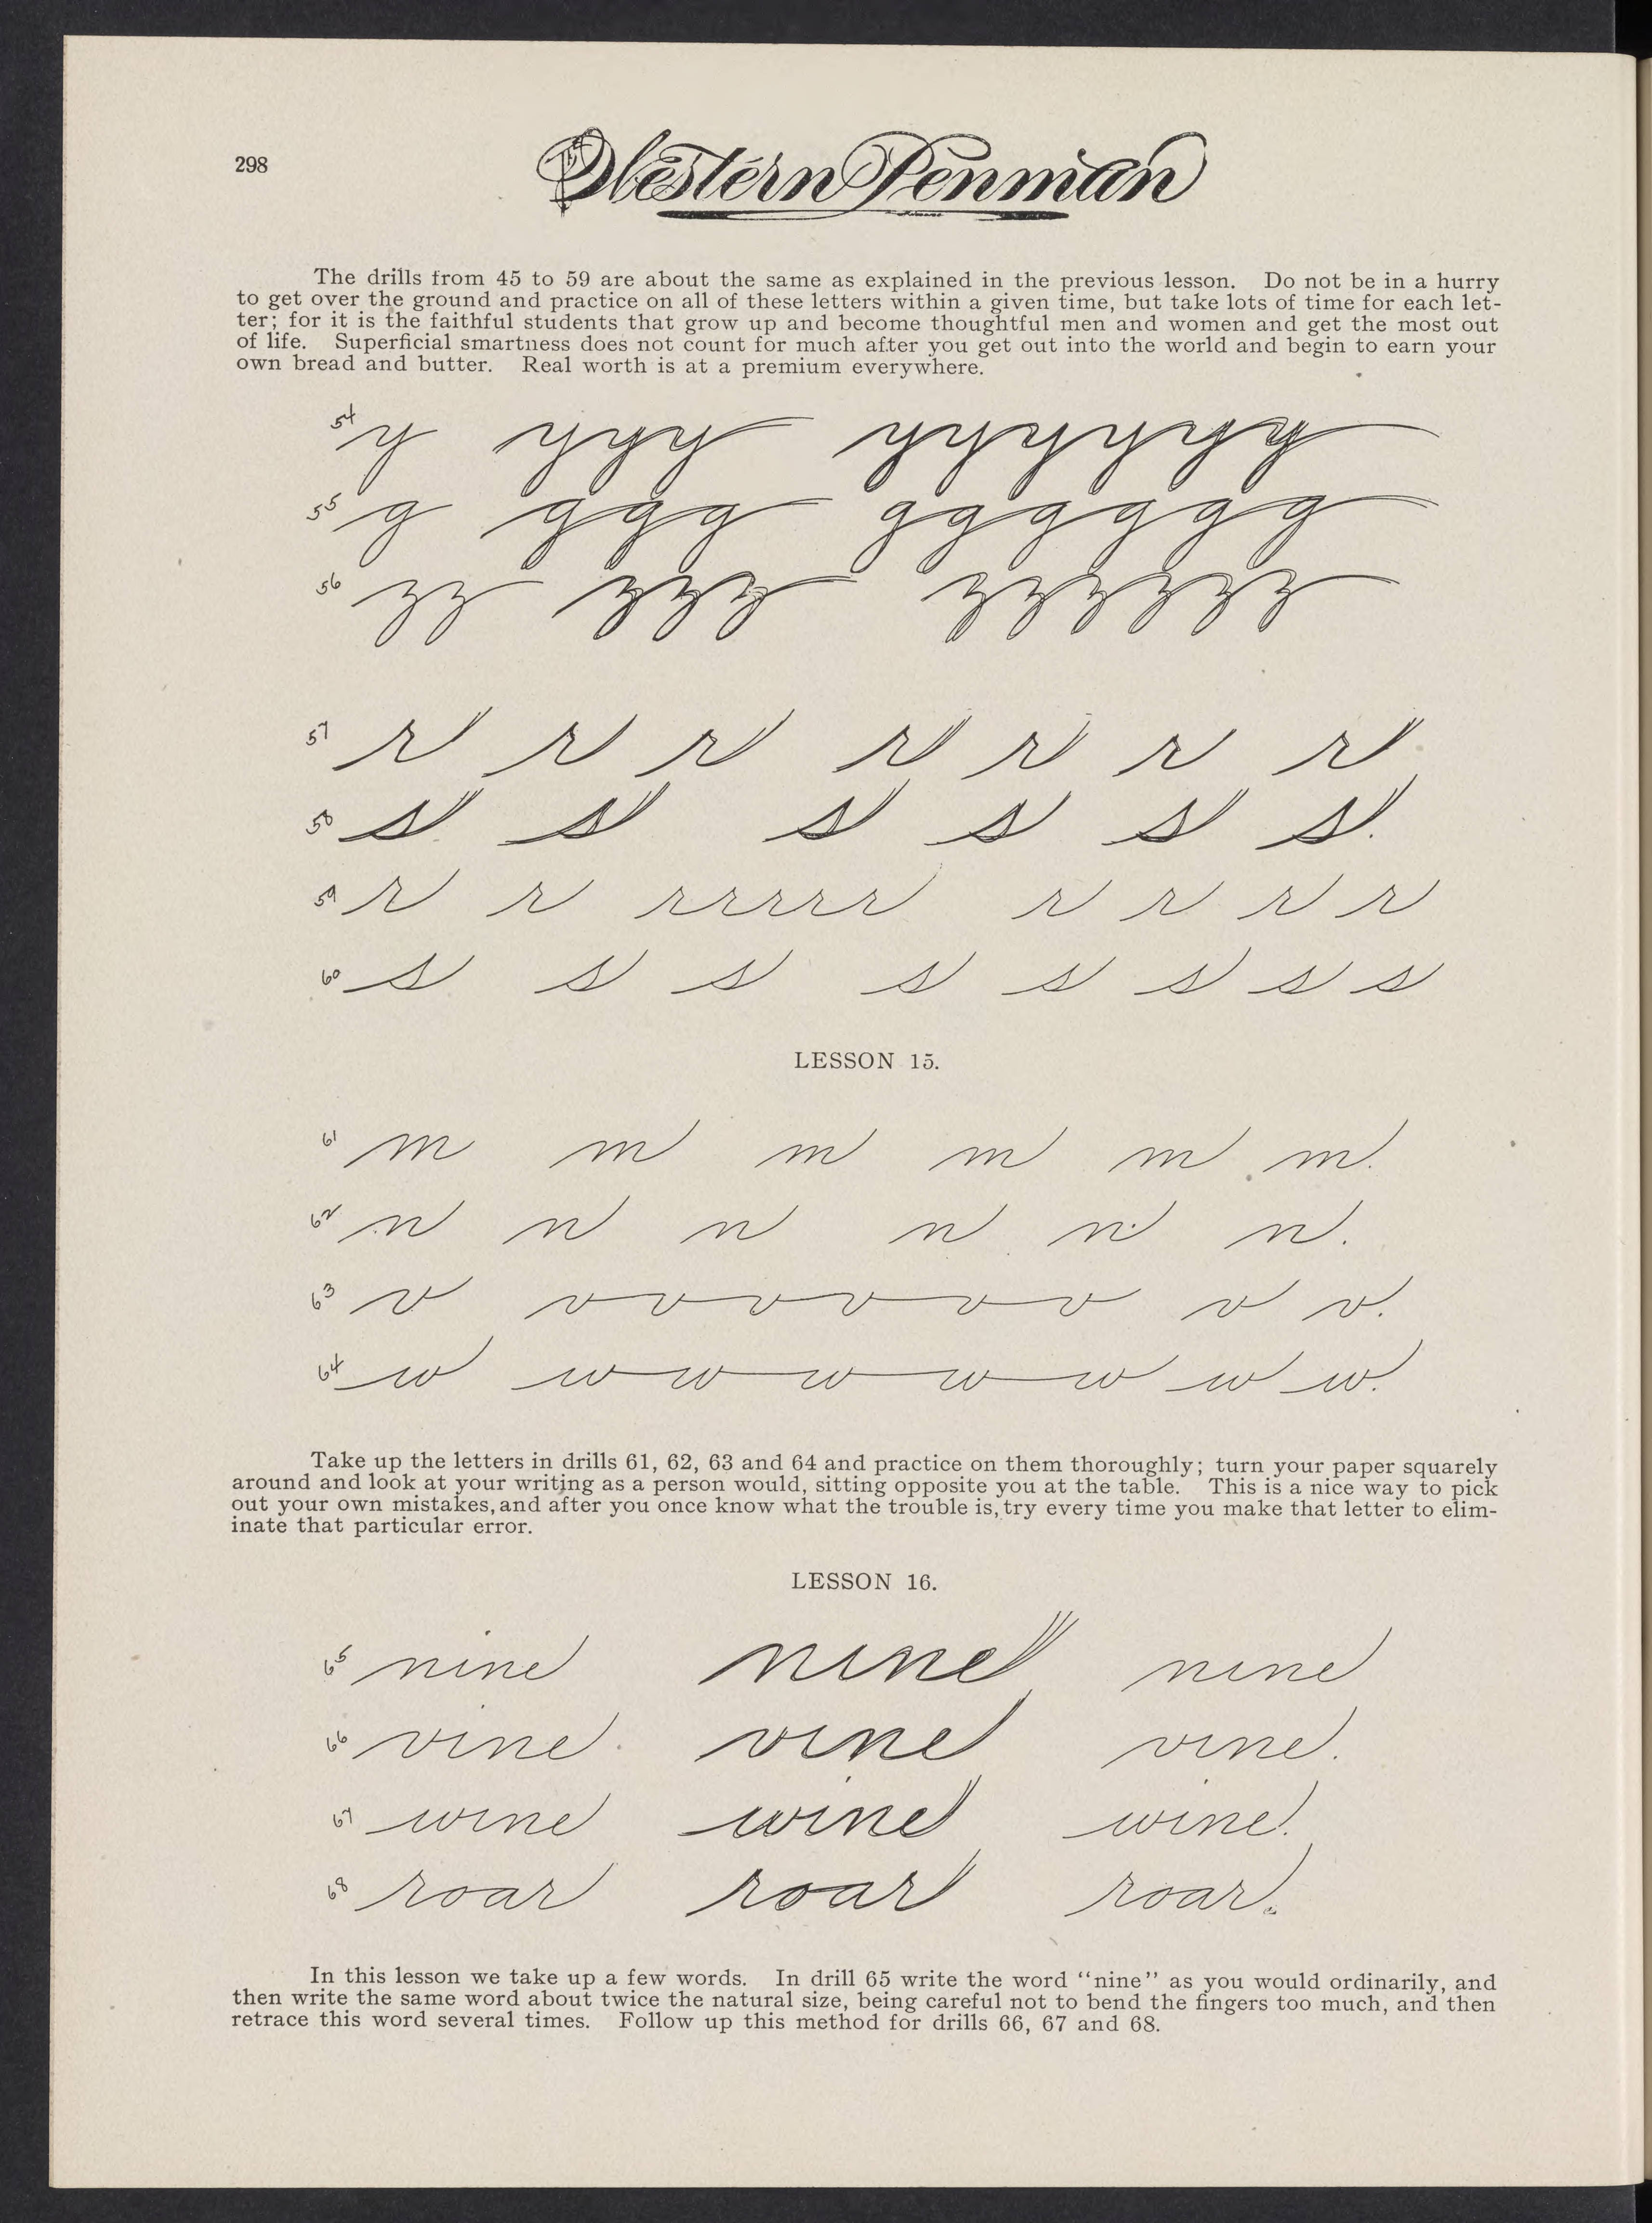 298
The Western Penman
The drills from 45 to 59 are about the same as explained in the previous lesson. Do not be in a hurry
to get over the ground and practice on all of these letters within a given time, but take lots of time for each let-
ter; for it is the faithful students that grow up and become thoughtful men and women and get the most out
of life. Superficial smartness does not count for much after you get out into the world and begin to earn your
own bread and butter. Real worth is at a premium everywhere.
54 y yyy yyyyyy
55 g ggg gggggg
56 zz zzz zzzzzz
57 r r r r r r r
58 s s s s s s
59 r r rrrrr r r r r
60 s s s s s s s s
LESSON 15.
61 m m m m m m.
62 n n n n n n.
63 v vvvvvv v v.
64 w wwwww w w.
Take up the letters in drills 61, 62, 63 and 64 and practice on them thoroughly; turn your paper squarely
around and look at your writing as a person would, sitting opposite you at the table. This is a nice way to pick
out your own mistakes, and after you once know what the trouble is, try every time you make that letter to elim-
inate that particular error.
LESSON 16.
65 nine nine nine
66 vine vine vine.
67 wine wine wine.
68 roar roar roar.
In this lesson we take up a few words. In drill 65 write the word "nine" as you would ordinarily, and
then write the same word about twice the natural size, being careful not to bend the fingers too much, and then
retrace this word several times. Follow up this method for drills 66, 67 and 68.